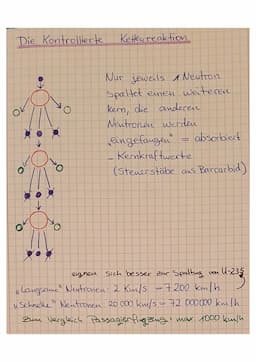 Die Kontrollierte Kettenreaktion
Nur jeweils 1 Neutron
spaltet einen weiteren
Kern, die anderen
Neutronen werden
"eingefangen" = absorbiert
- Kernkraftwerte
(Steuerstäbe aus Barcarbid)
eignen sich besser zur Spaltung von U-235
"Langsame" Neutronen: 2 km/s - 7 200 km/h
"Schnelle" Neutronen 20 000 km/s - 72 000 000 km/h
Zum Vergleich Passagierflugzeug: nur 1000 km/h